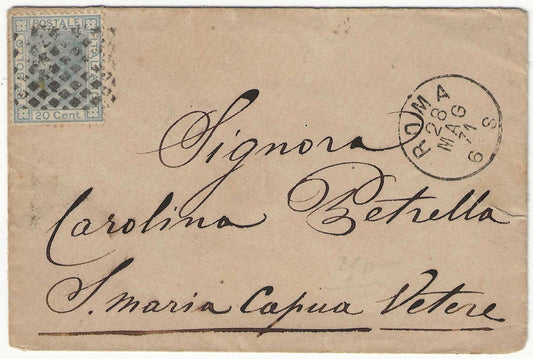 POSTALE
BOLLO
ITALIANO
20 Cent.
ROMA
28
MAG
71
6 S
Signora
Carolina Petrella
S. Maria Capua Vetere